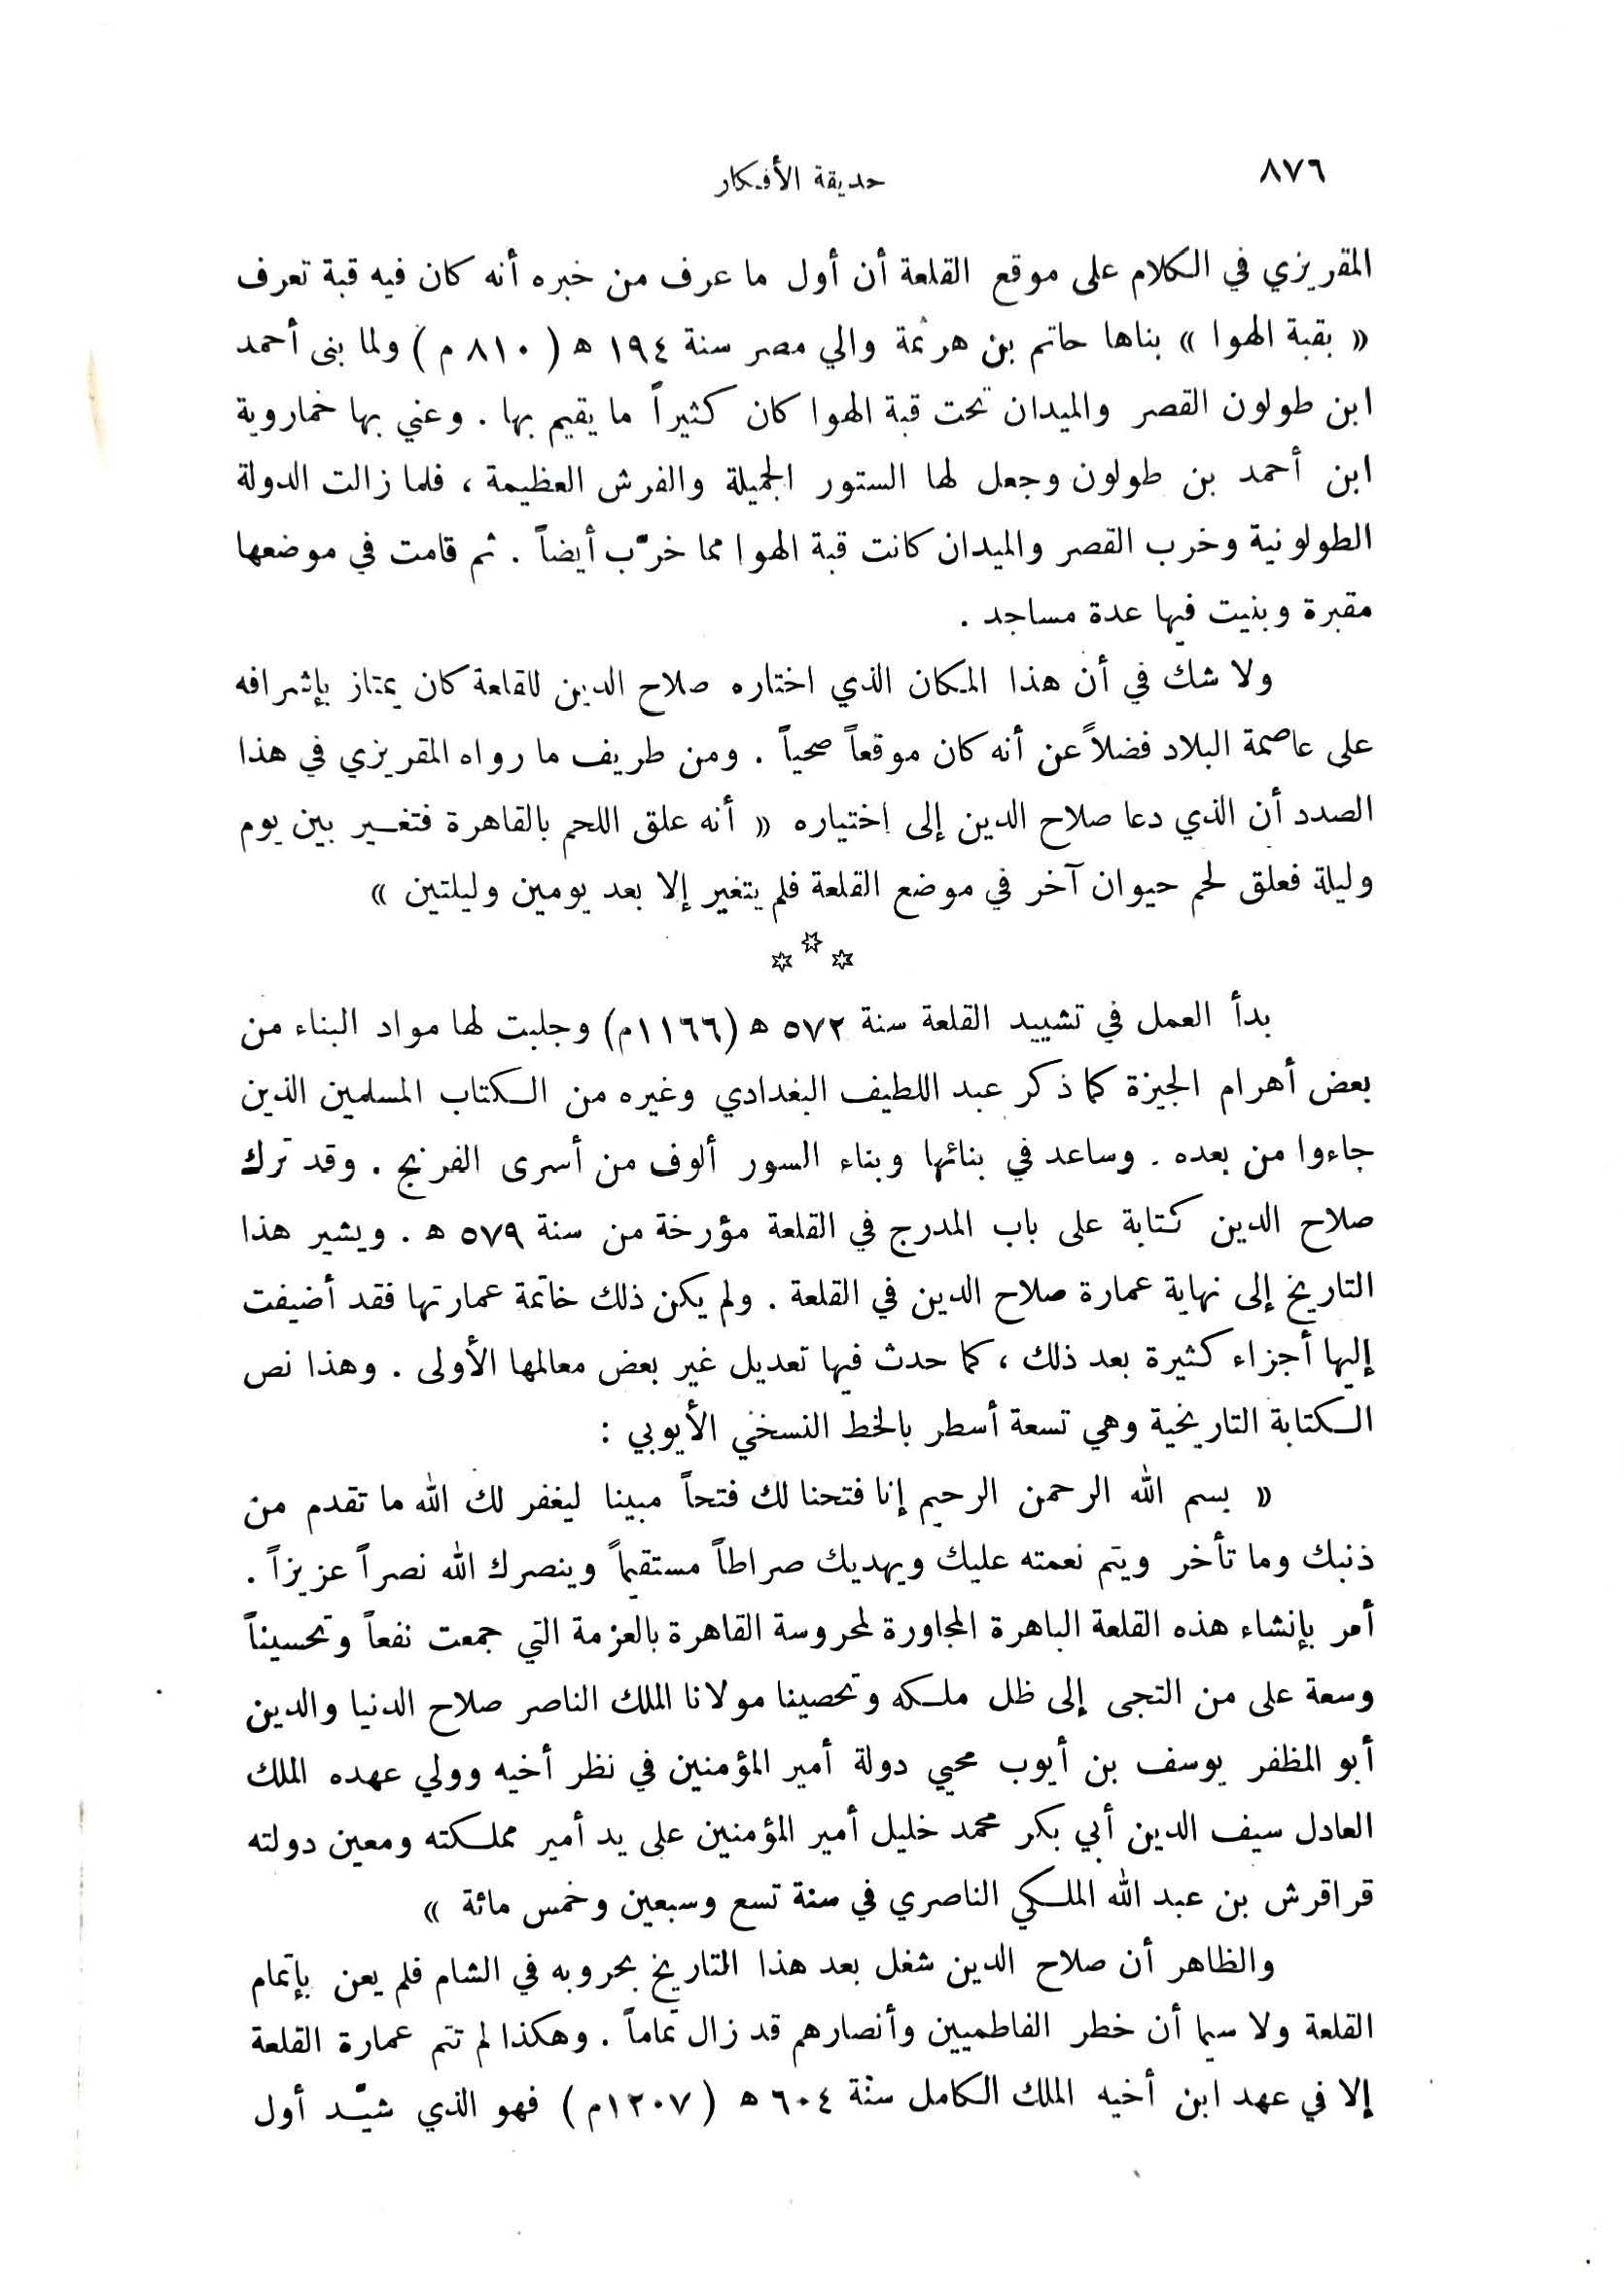 ٨٧٦
حديقة الأفكار
المقريزي في الكلام على موقع القلعة أن أول ما عرف من خبره أنه كان فيه قبة تعرف
« بقبة الهوا » بناها حاتم بن هرثمة والي مصر سنة ١٩٤ ه ( ٨١٠ م ) ولما بنى أحمد
ابن طولون القصر والميدان تحت قبة الهوا كان كثيراً ما يقيم بها . وعني بها خماروية
ابن أحمد بن طولون وجعل لها الستور الجميلة والفرش العظيمة ، فلما زالت الدولة
الطولونية وخرب القصر والميدان كانت قبة الهوا مما خرّب أيضاً . ثم قامت في موضعها
مقبرة وبنيت فيها عدة مساجد .
ولا شك في أن هذا المكان الذي اختاره صلاح الدين للقلعة كان يمتاز بإشرافه
على عاصمة البلاد فضلاً عن أنه كان موقعاً صحياً . ومن طريف ما رواه المقريزي في هذا
الصدد أن الذي دعا صلاح الدين إلى اختياره « أنه علق اللحم بالقاهرة فتغير بين يوم
وليلة فعلق لحم حيوان آخر في موضع القلعة فلم يتغير إلا بعد يومين وليلتين »
بدأ العمل في تشييد القلعة سنة ٥٧٢ ه (١١٦٦م) وجلبت لها مواد البناء من
بعض أهرام الجيزة كما ذكر عبد اللطيف البغدادي وغيره من الكتاب المسلمين الذين
جاءوا من بعده . وساعد في بنائها وبناء السور ألوف من أسرى الفرنج . وقد ترك
صلاح الدين كتابة على باب المدرج في القلعة مؤرخة من سنة ٥٧٩ ه . ويشير هذا
التاريخ إلى نهاية عمارة صلاح الدين في القلعة . ولم يكن ذلك خاتمة عمارتها فقد أضيفت
إليها أجزاء كثيرة بعد ذلك ، كما حدث فيها تعديل غير بعض معالمها الأولى . وهذا نص
الكتابة التاريخية وهي تسعة أسطر بالخط النسخي الأيوبي :
« بسم الله الرحمن الرحيم إنا فتحنا لك فتحاً مبينا ليغفر لك الله ما تقدم من
ذنبك وما تأخر ويتم نعمته عليك ويهديك صراطاً مستقيماً وينصرك الله نصراً عزيزاً .
أمر بإنشاء هذه القلعة الباهرة المجاورة لمحروسة القاهرة بالعزمة التي جمعت نفعاً وتحسيناً
وسعة على من التجى إلى ظل ملكه وتحصينا مولانا الملك الناصر صلاح الدنيا والدين
أبو المظفر يوسف بن أيوب محيي دولة أمير المؤمنين في نظر أخيه وولي عهده الملك
العادل سيف الدين أبي بكر محمد خليل أمير المؤمنين على يد أمير مملكته ومعين دولته
قراقرش بن عبد الله الملكي الناصري في سنة تسع وسبعين وخمس مائة »
والظاهر أن صلاح الدين شغل بعد هذا التاريخ بحروبه في الشام فلم يعن بإتمام
القلعة ولا سيما أن خطر الفاطميين وأنصارهم قد زال تماماً . وهكذا لم تتم عمارة القلعة
إلا في عهد ابن أخيه الملك الكامل سنة ٦٠٤ ه ( ١٢٠٧م ) فهو الذي شيّد أول